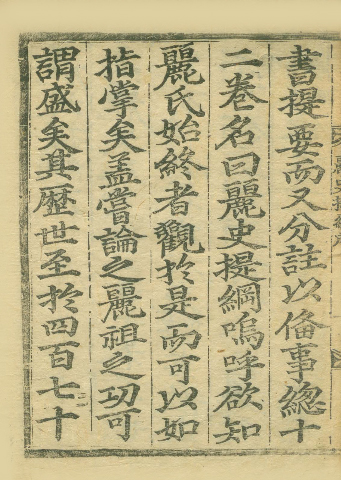 書提要而又分註以俻事總十
二卷名曰麗史提綱嗚呼欲知
麗氏始終者觀於是而可以如
指掌矣盖甞論之麗祖之功可
謂盛矣其歷世至於四百七十